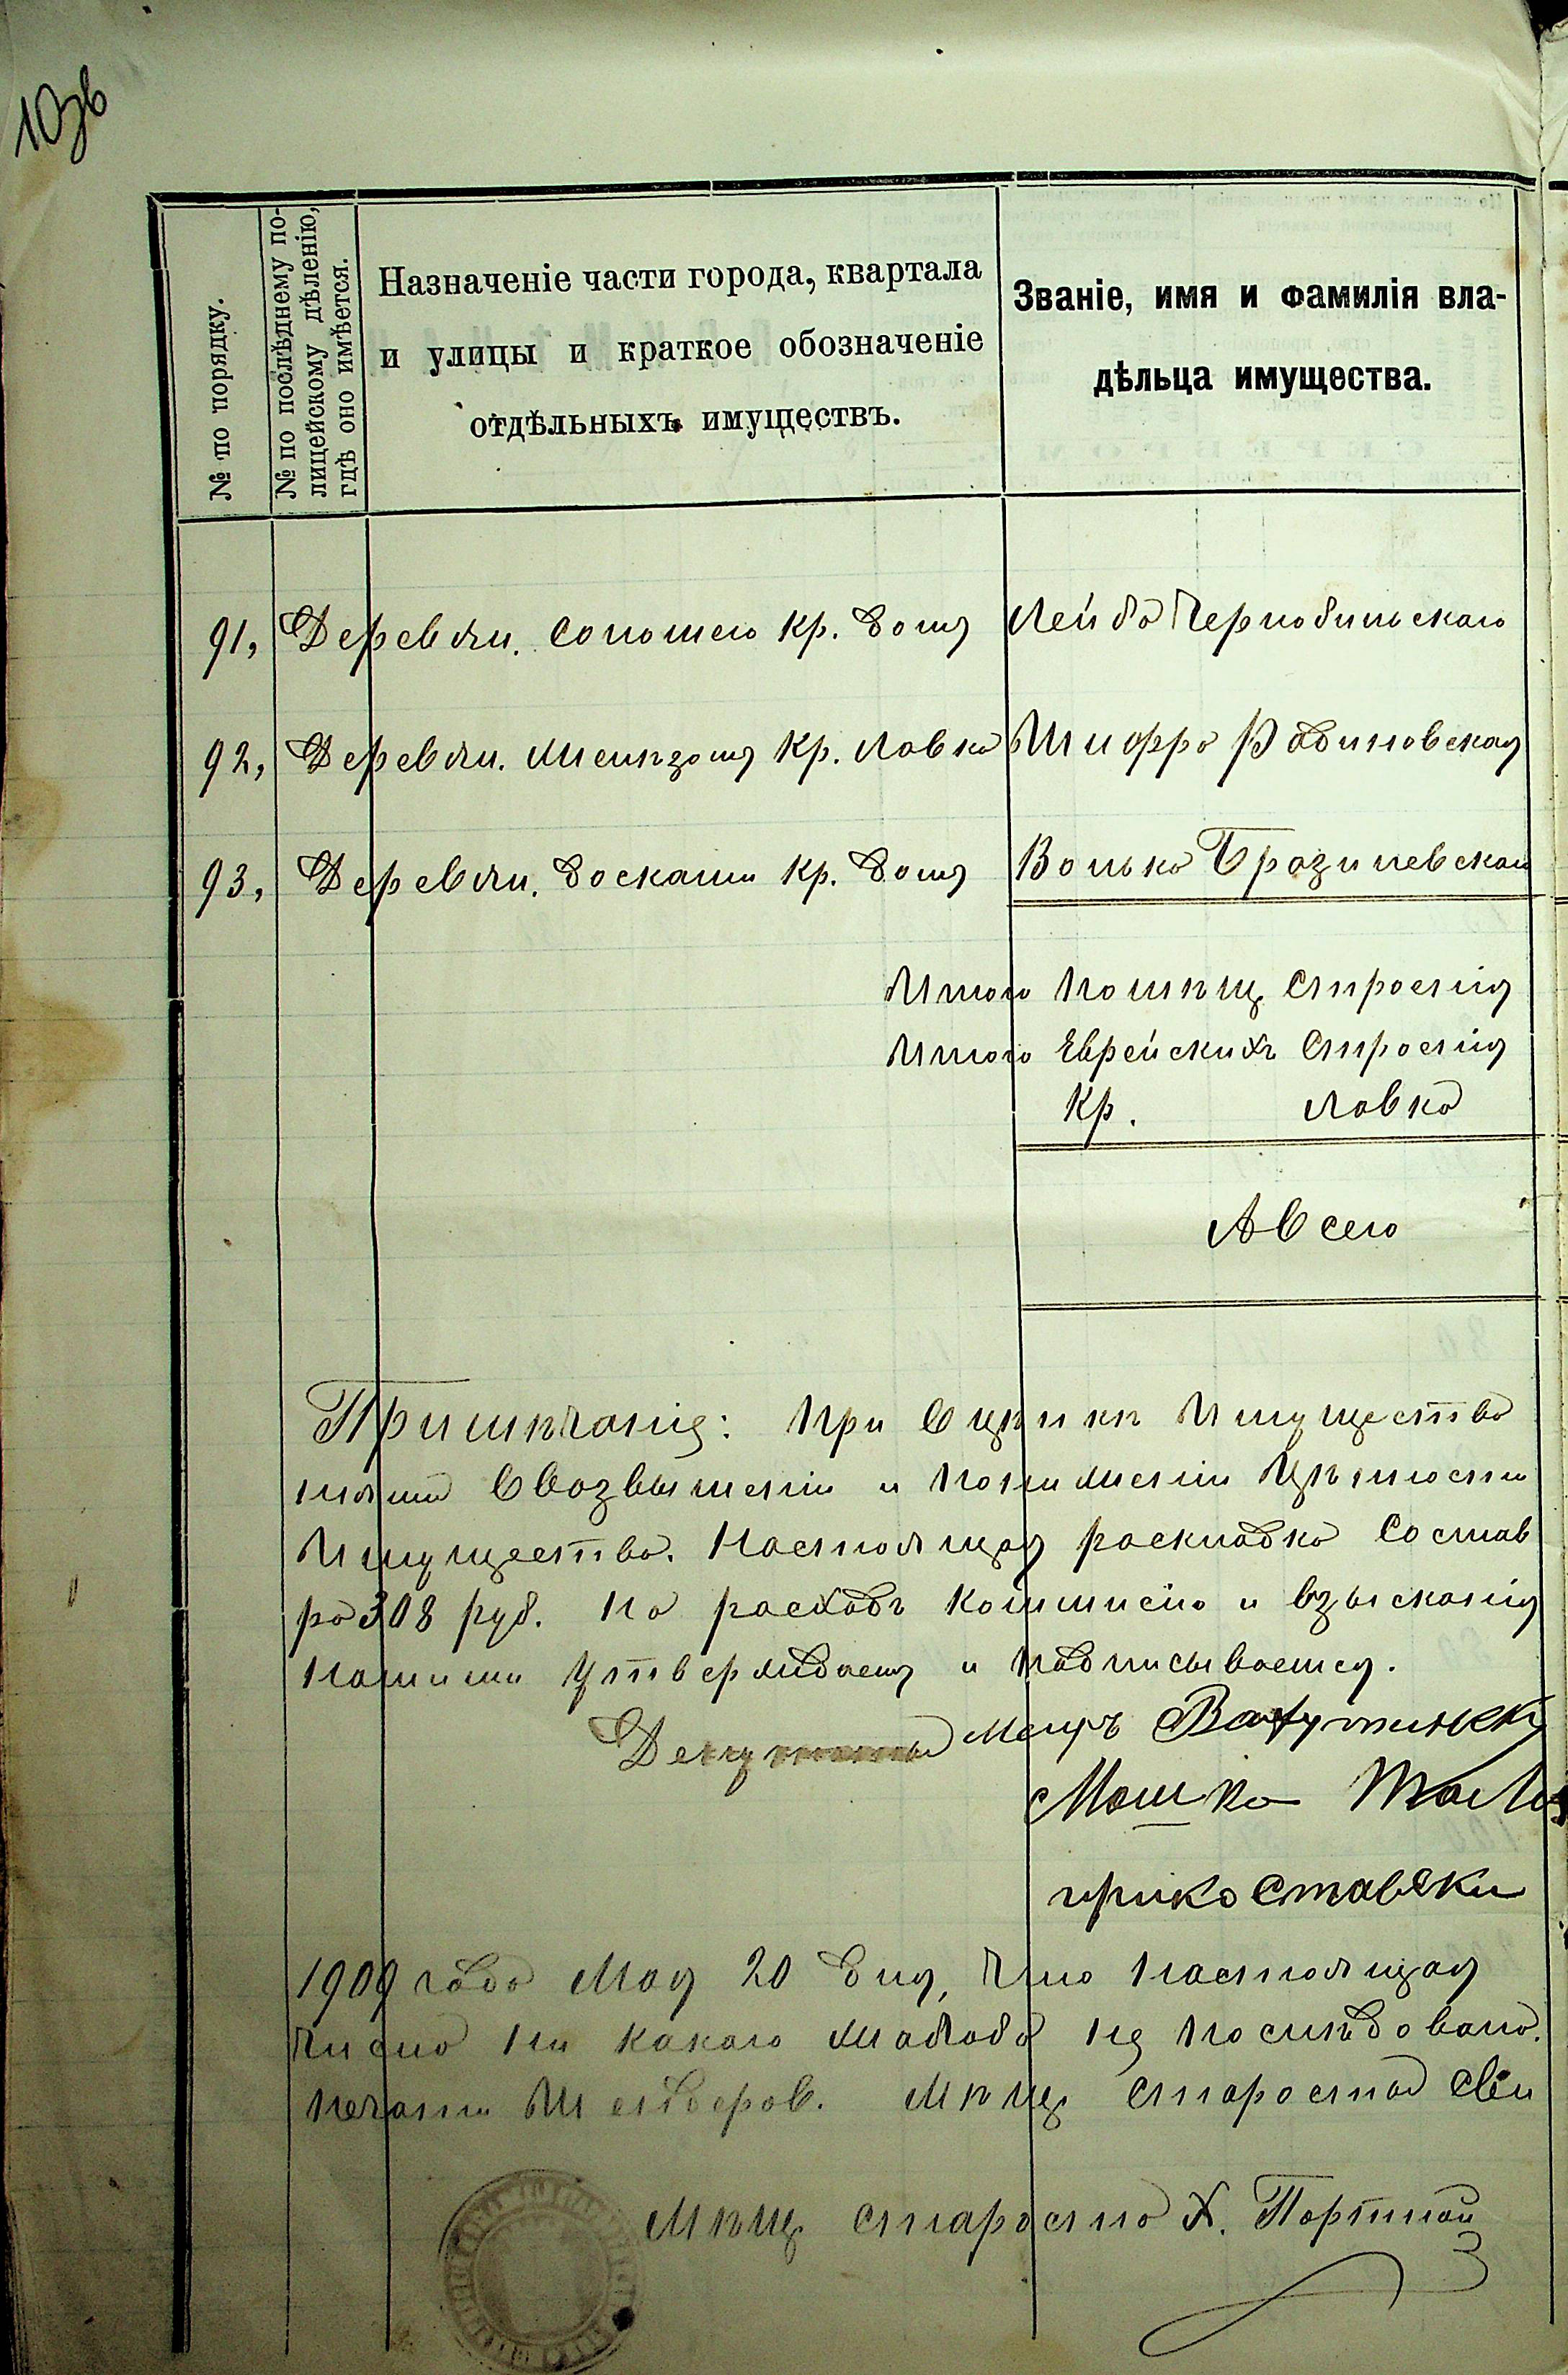 103б
№ по порядку.
№ по послѣднему по-
лицейскому дѣленію,
гдѣ оно имѣется.
Назначеніе части города, квартала
и улицы и краткое обозначеніе
отдѣльныхъ имуществъ.
Званіе, имя и фамилія вла-
дѣльца имущества.
91, Деревян. соломею кр. домъ Лейба Чернобильскаго
92, Деревян. желѣзомъ кр. лавка Шифра Рабиновская
93, Деревян. досками кр. домъ Волько Бразилевскаго
Итого помѣщ. строенія
Итого Еврейскихъ строенія
Кр. лавка
А всего
Примѣчанія: при оцѣнкѣ имущества
ввозвышеніи и пониженіи цѣнности
имущества. Настоящая раскладка состав
ра 308 руб. на расходъ комисію и взысканія
нашими утверждаемъ и подписываемся.
Депутаты
Мошко
1909 года мая 20 дня, что настоящая
число ни какаго жалоба не послѣдовало.
печати Мѣщ староста
Мѣщ староста Х. Портной